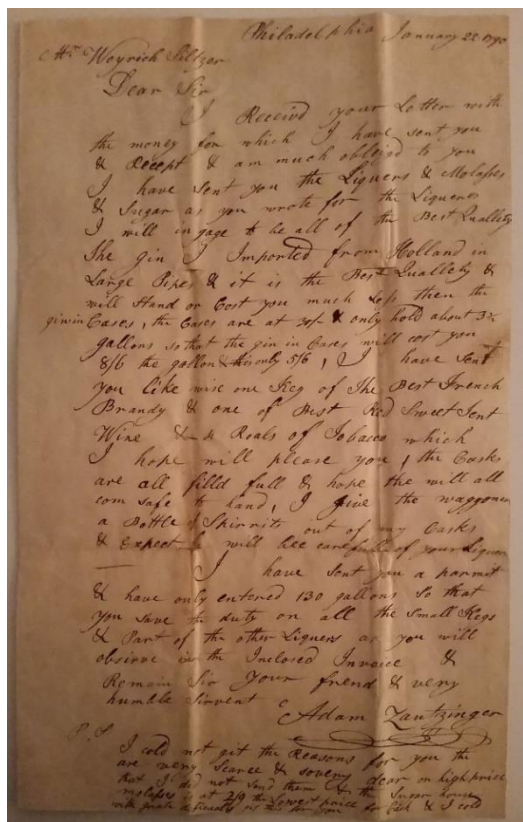 Philadelphia January 22 1790
Mr Weyrich Siltzer
Dear Sir
I Receivd your Letter with
the money for which I have sent you
& Recept & am much obleigd to you
I have sent you the Liquers & Molasses
& Sugar as you wrote for the Liquers
I will ingage to be all of the Best Quallety
The Gin I Imported from Holland in
Large Pipes & it is the Best Quallety &
will Stand or Cost you much Less then the
gin in Cases, the Cases are at 30/- & only hold about 3½
gallons so that the gin in Cases will cost you
8/6 the gallon & this only 5/6, I have Sent
you like wise one Keg of the Best French
Brandy & one of Best Red Sweet Sent
Wine & Roals of Tobacco which
I hope will please you, the Casks
are all filld full & hope the will all
com safe to hand, I give the waggoner
a Bottle of Spirrits out of my Casks
& Expect he will bee carefull of your Liquers
I have sent you a parmit
& have only entered 130 gallons so that
you save the duty on all the Small Kegs
& Part of the other Liquers as you will
obsirve in the Inclosed Invoice &
Remain Sir your frend & very
humble Sirvent
Adam Zantzinger
P.S
I cold not git the Reasons for you the
are very Scarce & so very dear or high price
that I did not send them & the Sugar house
molasses is at 2/9 the Lowest price for Cash & I cold